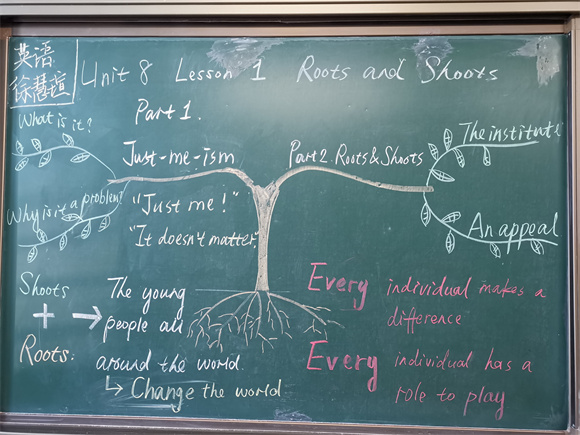 英语
徐慧瑄
Unit 8 Lesson 1 Roots and Shoots
Part 1.
What is it?
Just-me-ism
Why is it a problem?
"Just me!"
"It doesn't matter."
Part 2. Roots & Shoots
The institute
An appeal
Shoots
+ → The young
people all
Roots: around the world
↳ Change the world
Every individual makes a
difference
Every individual has a
role to play